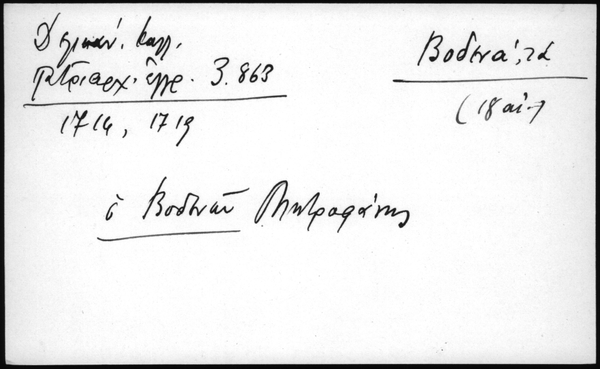 Δελικάν. Καλλ.
Πατριαρχ. ἔγγρ. 3.863
1714, 1719
Βοδενά, τὰ
(18 αἰ.)
ὁ Βοδενῶν Μητροφάνης